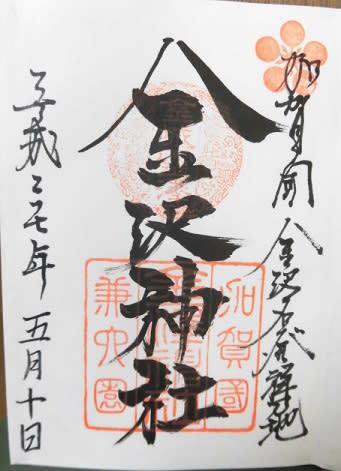 加賀開 金沢名発祥地
金沢神社
加賀國
兼六園
平成二七年五月十日